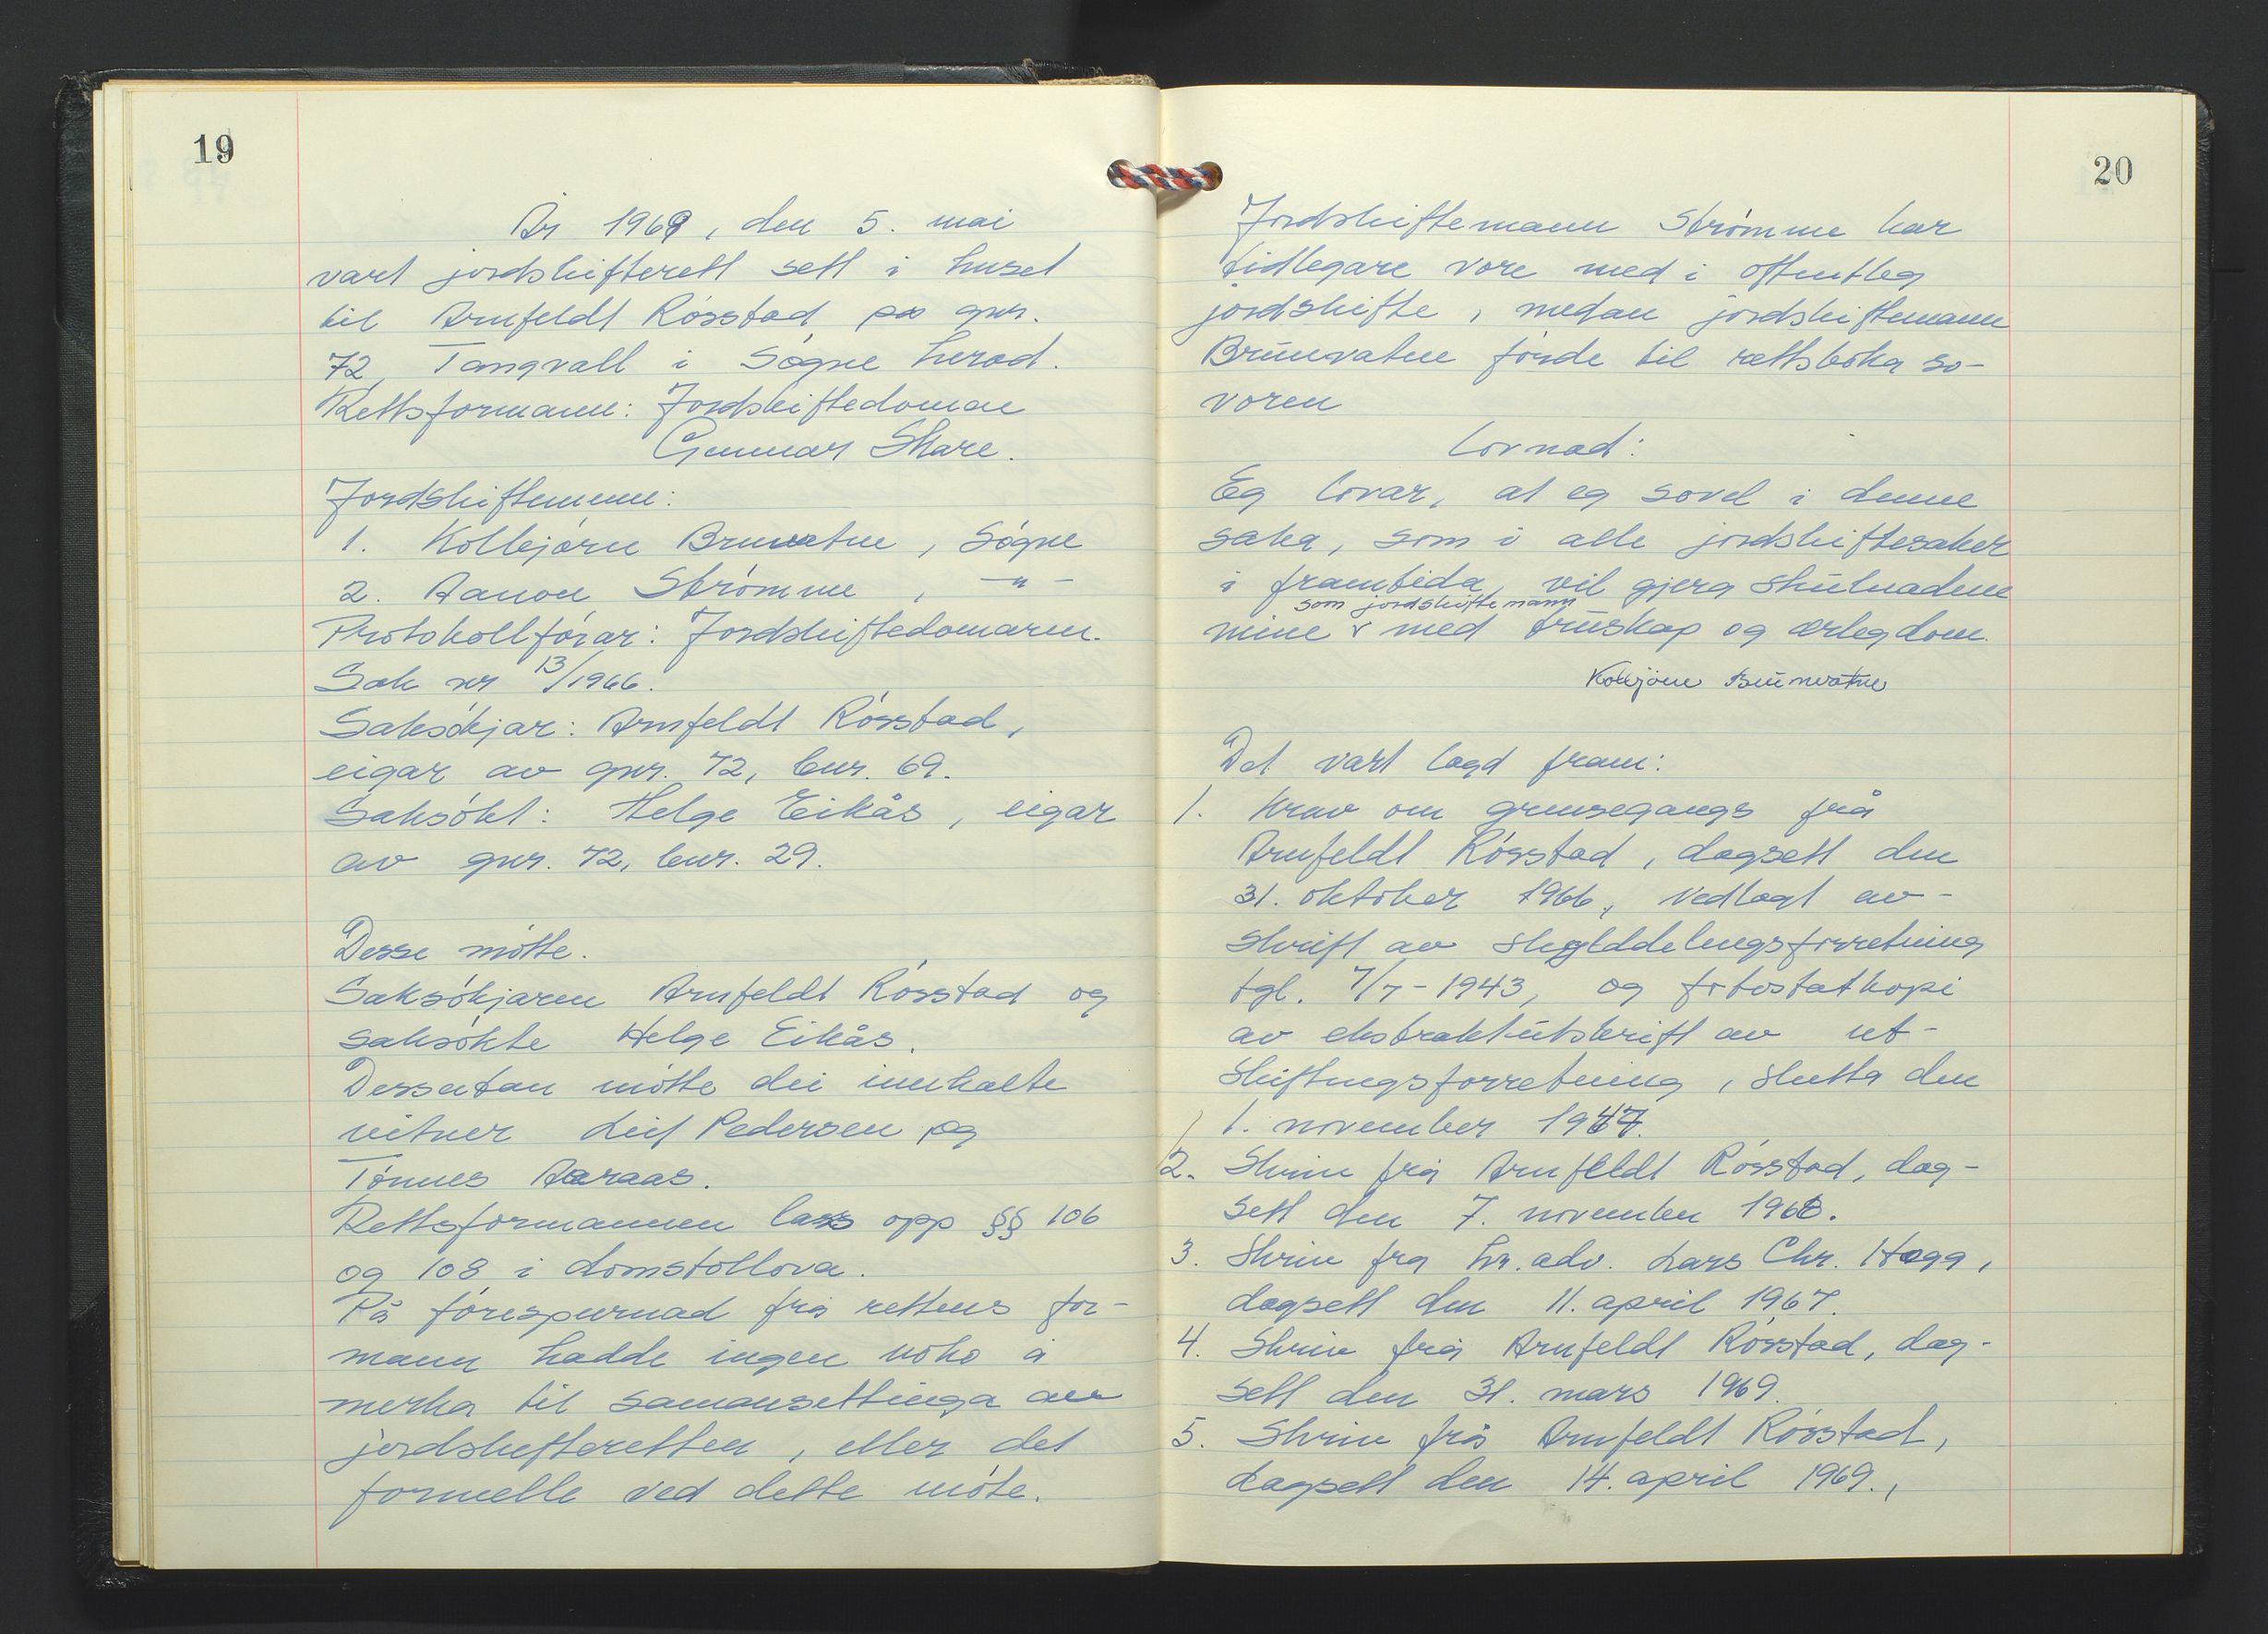 19
År 1969, den 5. mai
vart jordskifterett sett i huset
til Arnfeldt Rósstad på gnr.
72 Tangvall i Søgne herad.
Rettsformann: Jordskiftedomar
Gunnar Skare.
Jordskiftemenn:
1. Kolbjørn Brunvatne, Søgne
2. Aanon Strømme, -"-
Protokollførar: Jordskiftedomaren.
Sak nr 13/1966.
Saksøkjar: Arnfeldt Røsstad,
eigar av gnr. 72, bnr. 69.
Saksøkt: Helge Eikås, eigar
av gnr. 72, bnr. 29.
Desse møtte.
Saksøkjaren Arnfeldt Røsstad og
saksøkte Helge Eikås.
Dessutan møtte dei innkalte
vitner Leif Pedersen og
Tønnes Aaraas.
Rettsformannen lass opp §§ 106
og 108 i domstollova.
På førespurnad frå rettens for-
mann hadde ingen noko å
merka til samansettinga av
jordskifteretten, eller det
formelle ved dette møte.
20
Jordskiftemann Strømme har
tidlegare vore med i offentleg
jordskifte, medan jordskiftemann
Brunvatne førde til rettsboka so-
voren
Lovnad:
Eg lovar, at eg sovel i denne
saka, som i alle jordskiftesaker
i framtida, vil gjera skulnadene
som jordskiftemann
mine v med truskap og ærlegdom.
Kolbjørn Brunvatne
Det vart lagd fram:
1. Krav om grensegangs frå
Arnfeldt Røsstad, dagsett den
31. oktober 1966, vedlagt av-
skrift av skylddelingsforretning
tgl. 7/7-1943, og fotostatkopi
av ekstraktutskrift av ut-
skiftngsforretning, slutta den
1. november 1947.
2. Skriv frå Arnfeldt Røsstad, dag-
sett den 7. november 1968.
3. Skriv fra hr. adv. Lars Chr. Hagg,
dagsett den 11. april 1967.
4. Skriv frå Arnfeldt Røsstad, dag-
sett den 31. mars 1969.
5. Skriv frå Arnfeldt Røsstad,
dagsett den 14. april 1969.,